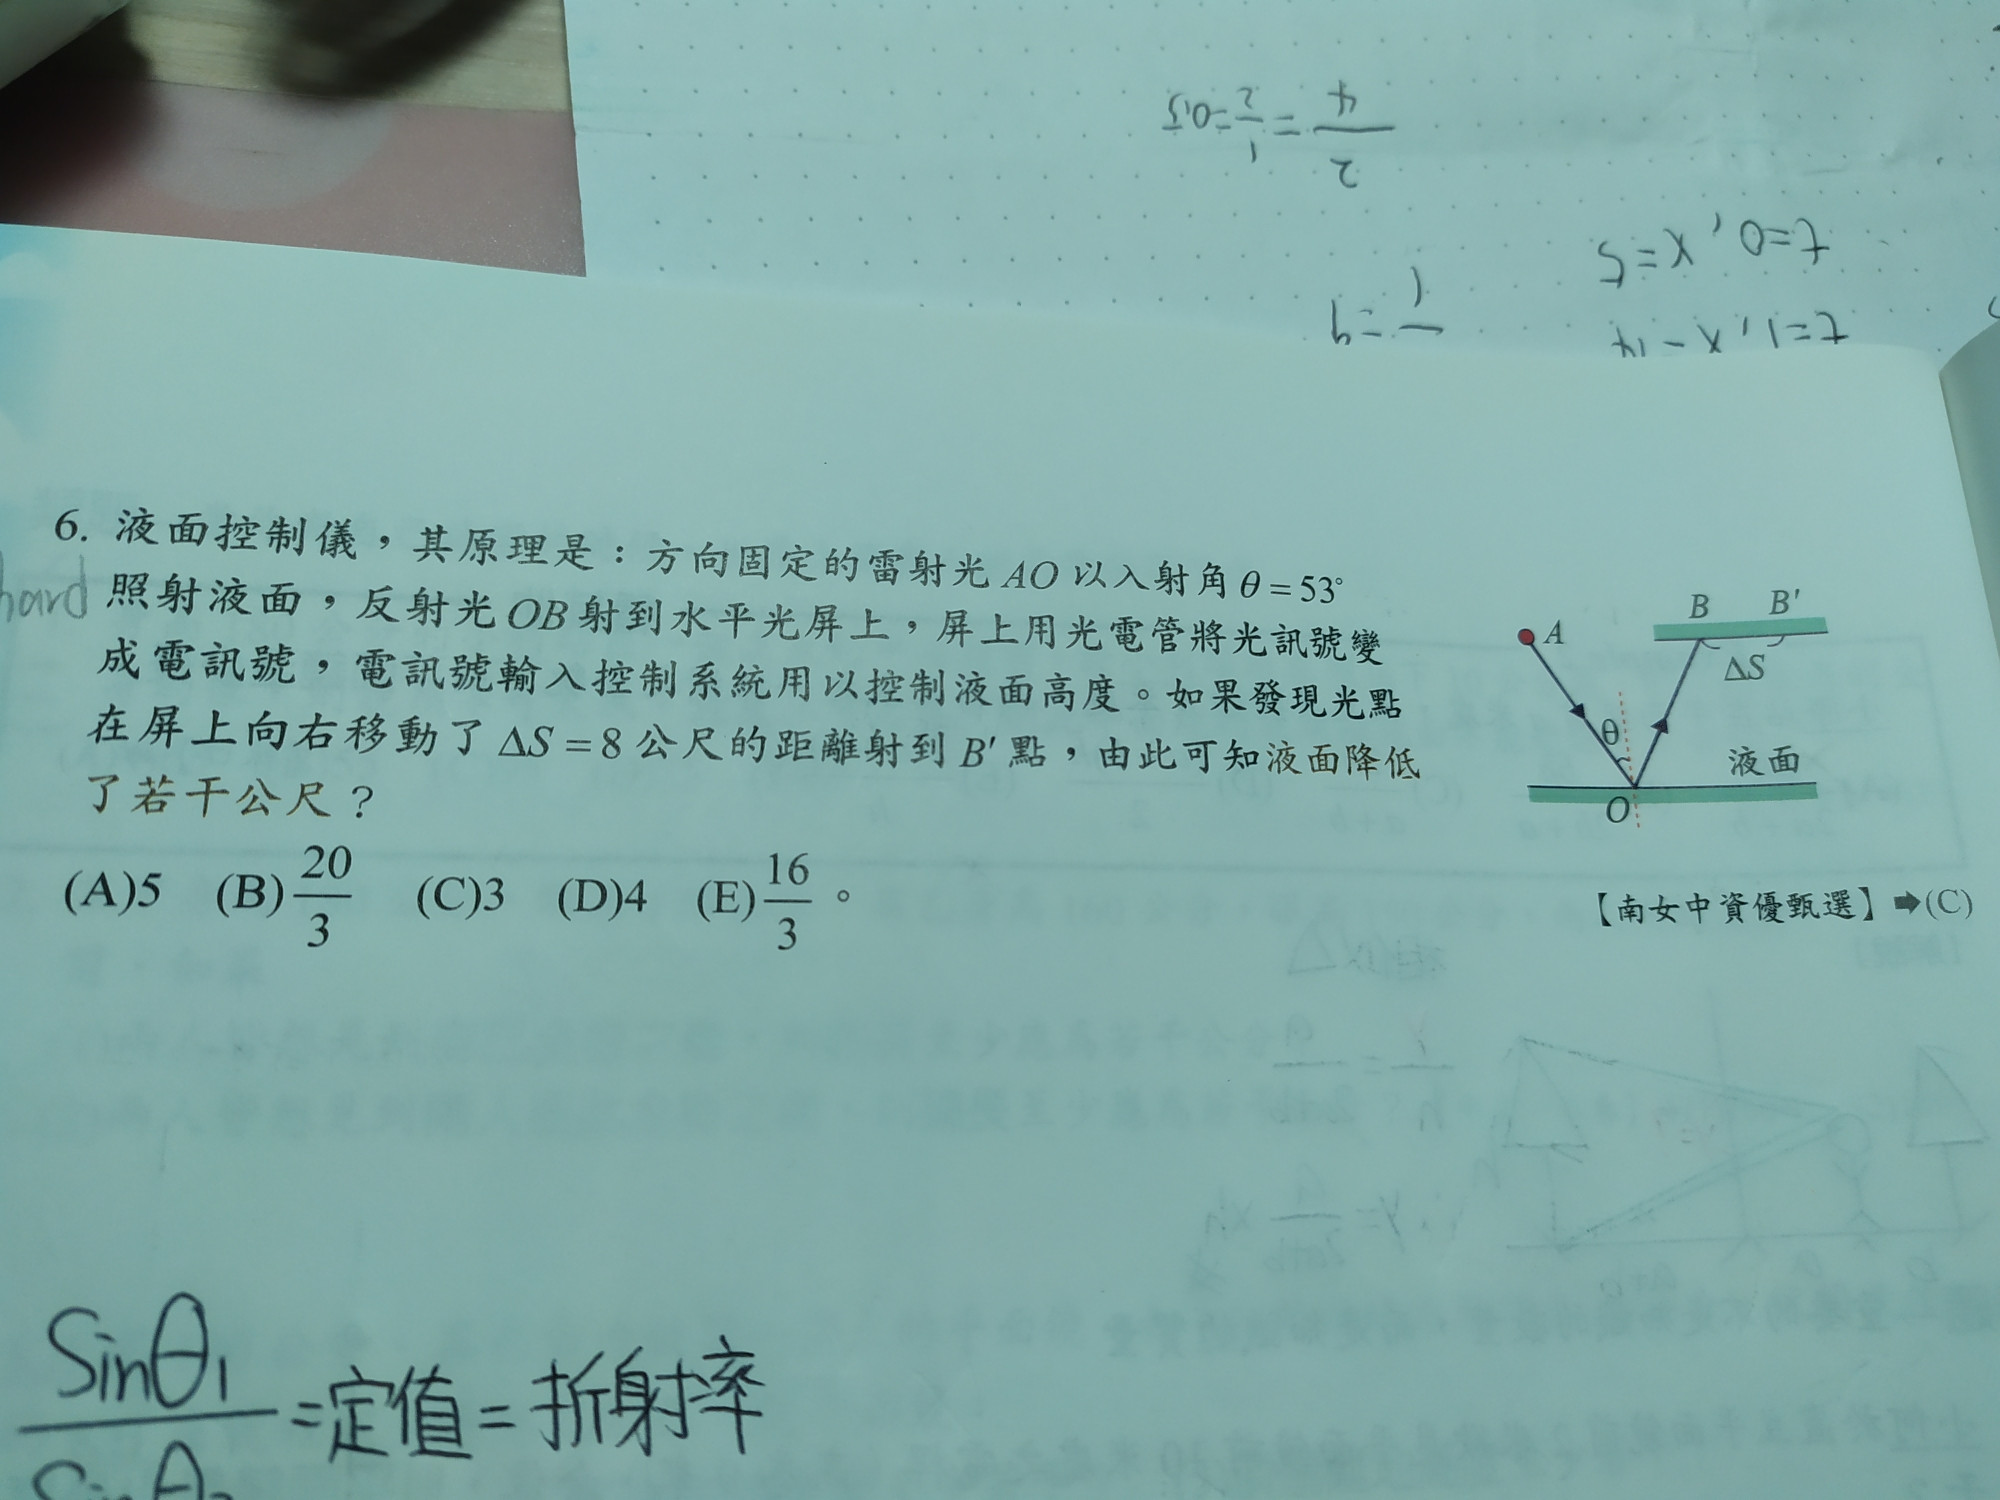 2/4 = 1/2 = 0.5
t=0, x=5
t=1, x=14
6. 液面控制儀，其原理是：方向固定的雷射光 AO 以入射角 θ = 53°
hard 照射液面，反射光 OB 射到水平光屏上，屏上用光電管將光訊號變
成電訊號，電訊號輸入控制系統用以控制液面高度。如果發現光點
在屏上向右移動了 ΔS = 8 公尺的距離射到 B′ 點，由此可知液面降低
了若干公尺？
A B B′
ΔS
θ
液面
O
(A)5 (B)20/3 (C)3 (D)4 (E)16/3。
【南女中資優甄選】➡(C)
Sinθ1/Sinθ2 = 定值 = 折射率